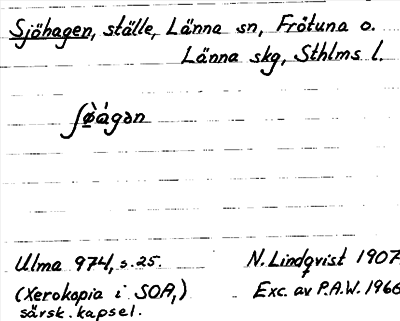 Sjöhagen, ställe, Länna sn, Frötuna o.
Länna skg, Sthlms l.
ʃø̀ágən
Ulma 974, s. 25.
N. Lindqvist 1907
(Xerokopia i SOA,)
särsk. kapsel.
Exc. av P.A.W. 1966